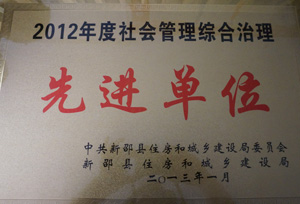 2012年度社会管理综合治理
先进单位
中共新邵县住房和城乡建设局委员会
新邵县住房和城乡建设局
二〇一三年一月